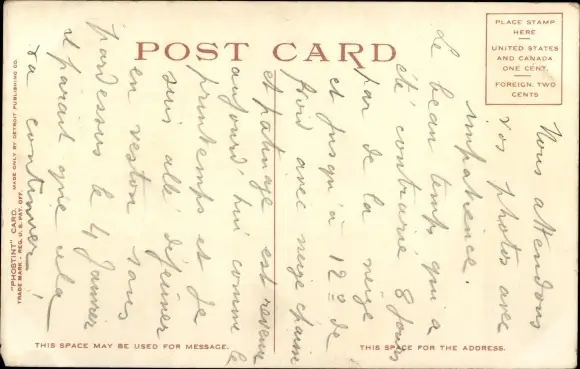 POST CARD
PLACE STAMP
HERE
UNITED STATES
AND CANADA
ONE CENT.
FOREIGN, TWO
CENTS
Nous attendons
vos photos avec
impatience.
Le beau temps qui a
été contrarié 8 jours
par de la neige
et jusqu'à 12° de
froid avec neige épaisse
et patinage est revenu
aujourd'hui comme le
printemps et je
suis allé déjeuner
en veston sans
pardessus le 4 Janvier
et parait que cela
va continuer!
"PHOSTINT" CARD. MADE ONLY BY DETROIT PUBLISHING CO.
TRADE MARK - REG. U. S. PAT. OFF.
THIS SPACE MAY BE USED FOR MESSAGE.
THIS SPACE FOR THE ADDRESS.